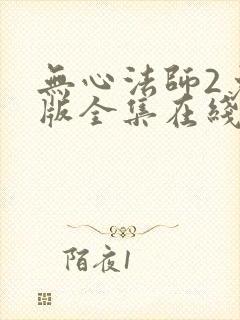 無心法師2
版全集在綫
陌夜1